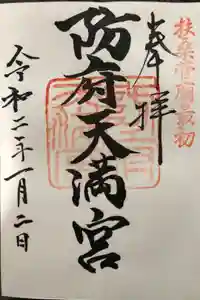 扶桑菅廟最初
奉拝
防府天満宮
令和二年一月二日